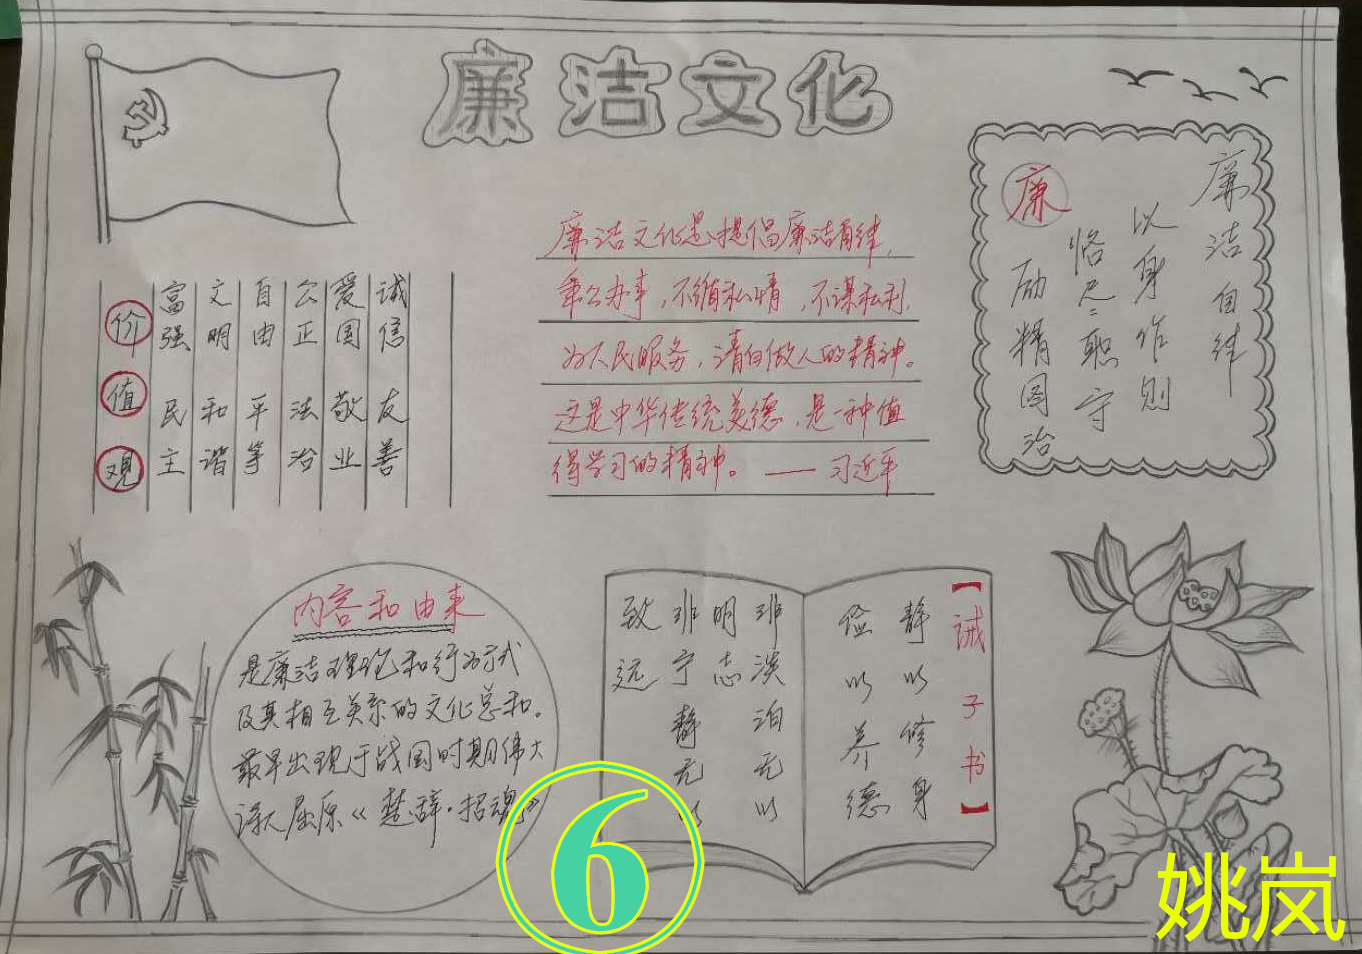 廉洁文化
廉洁自律
以身作则
恪尽职守
励精图治
廉
廉洁文化是提倡廉洁自律,
秉公办事,不循私情,不谋私利,
为人民服务,清白做人的精神。
这是中华传统美德,是一种值
得学习的精神。——习近平
价值观
富强 民主
文明 和谐
自由 平等
公正 法治
爱国 敬业
诚信 友善
内容和由来
是廉洁理论和行为方式
及其相互关系的文化总和。
最早出现于战国时期伟大
诗人屈原《楚辞·招魂》
【诫子书】
静以修身
俭以养德
非淡泊无以
明志
非宁静无以
致远
6
姚岚